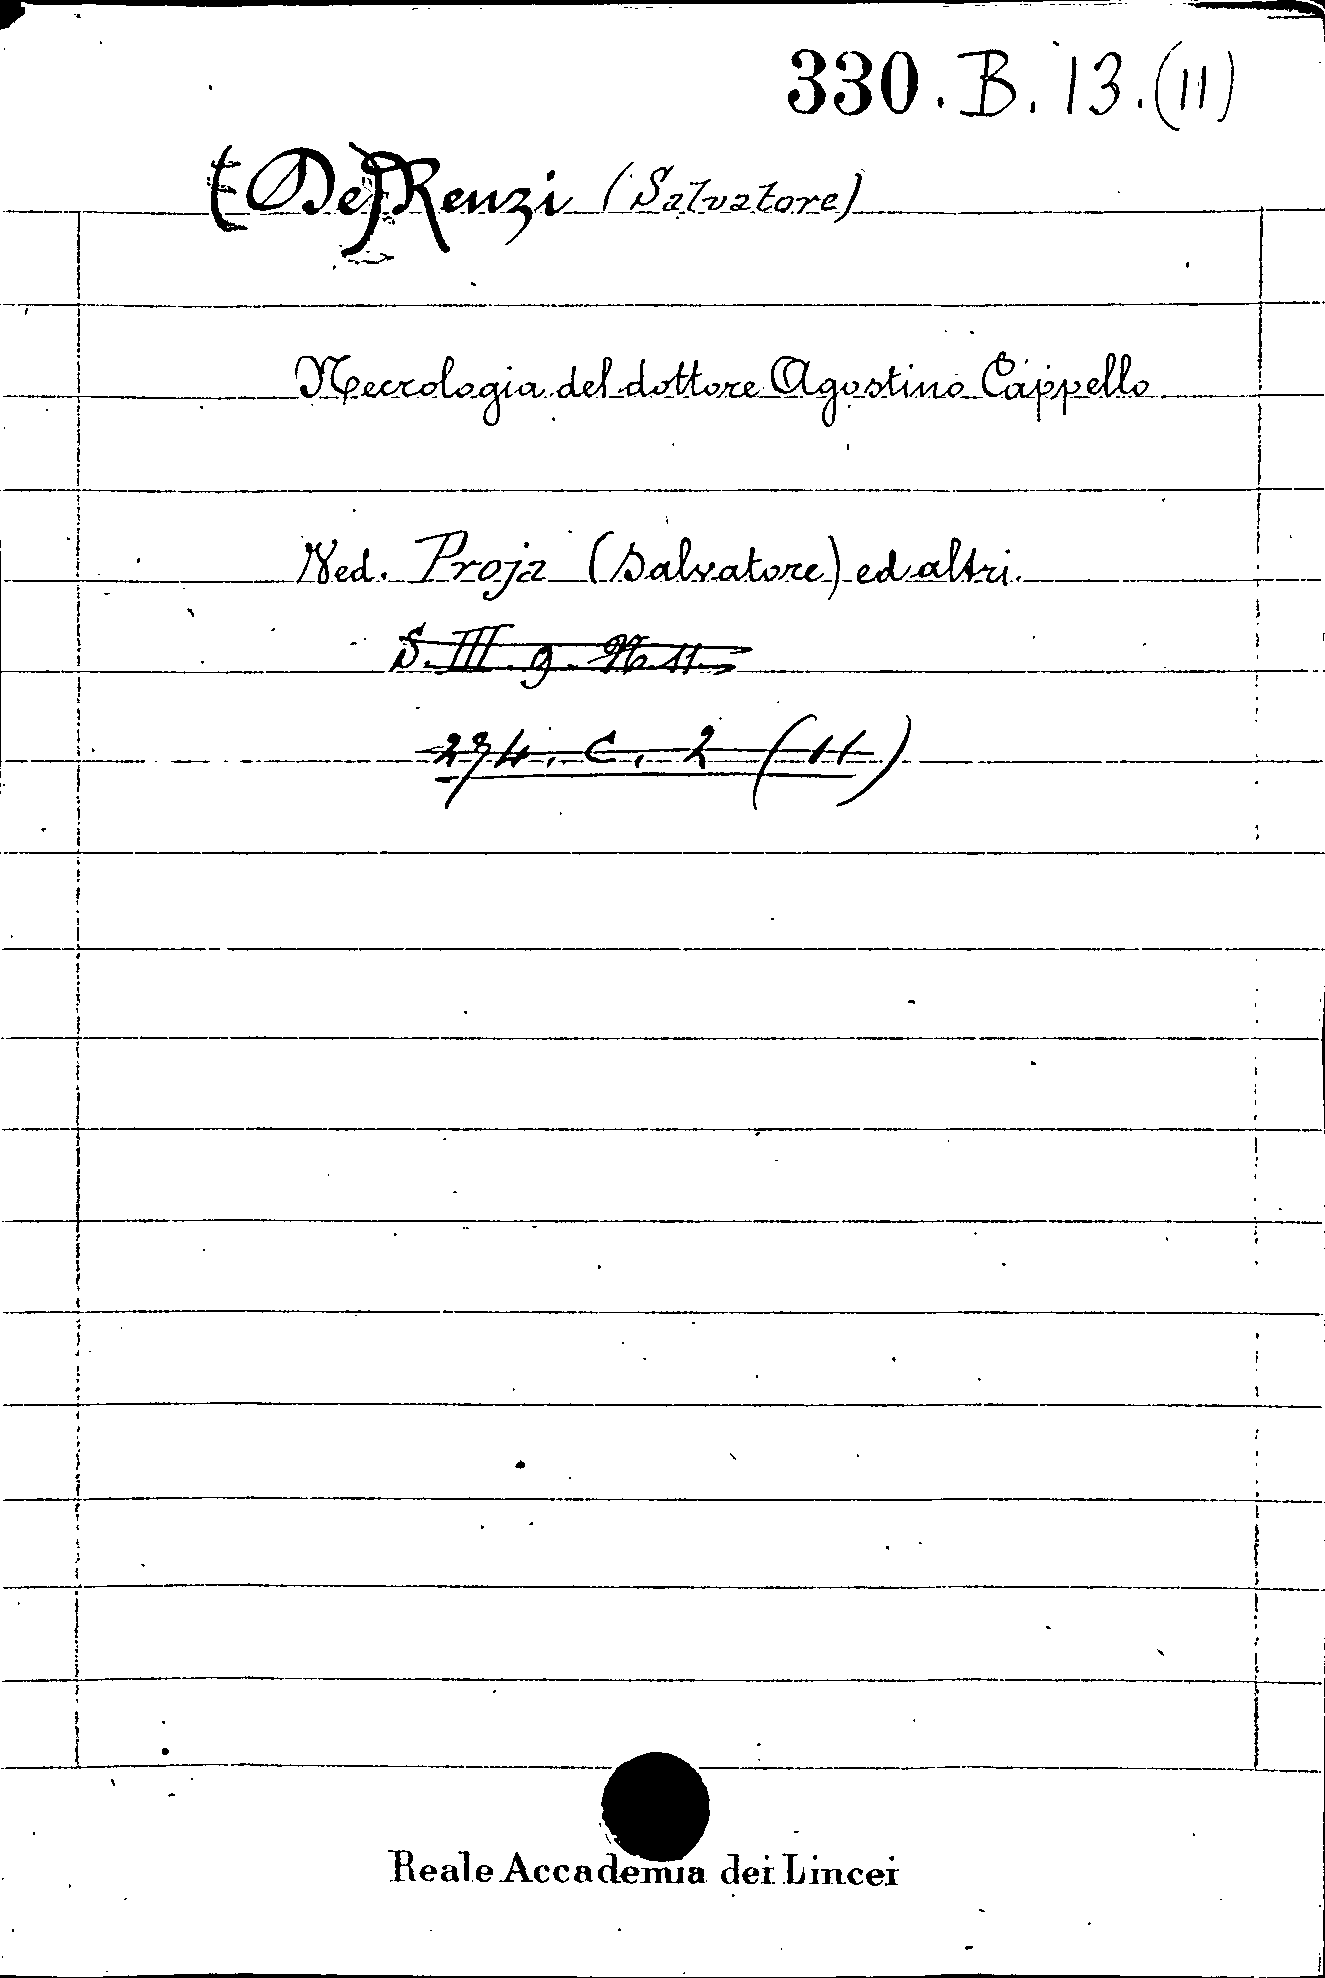 330. B. 13. (11)
(De) Renzi (Salvatore)
Necrologia del dottore Agostino Cappello
Ved. Proja (Salvatore) ed altri.
S. III. 9. N. 11.
234. C. 2 (11)
Reale Accademia dei Lincei